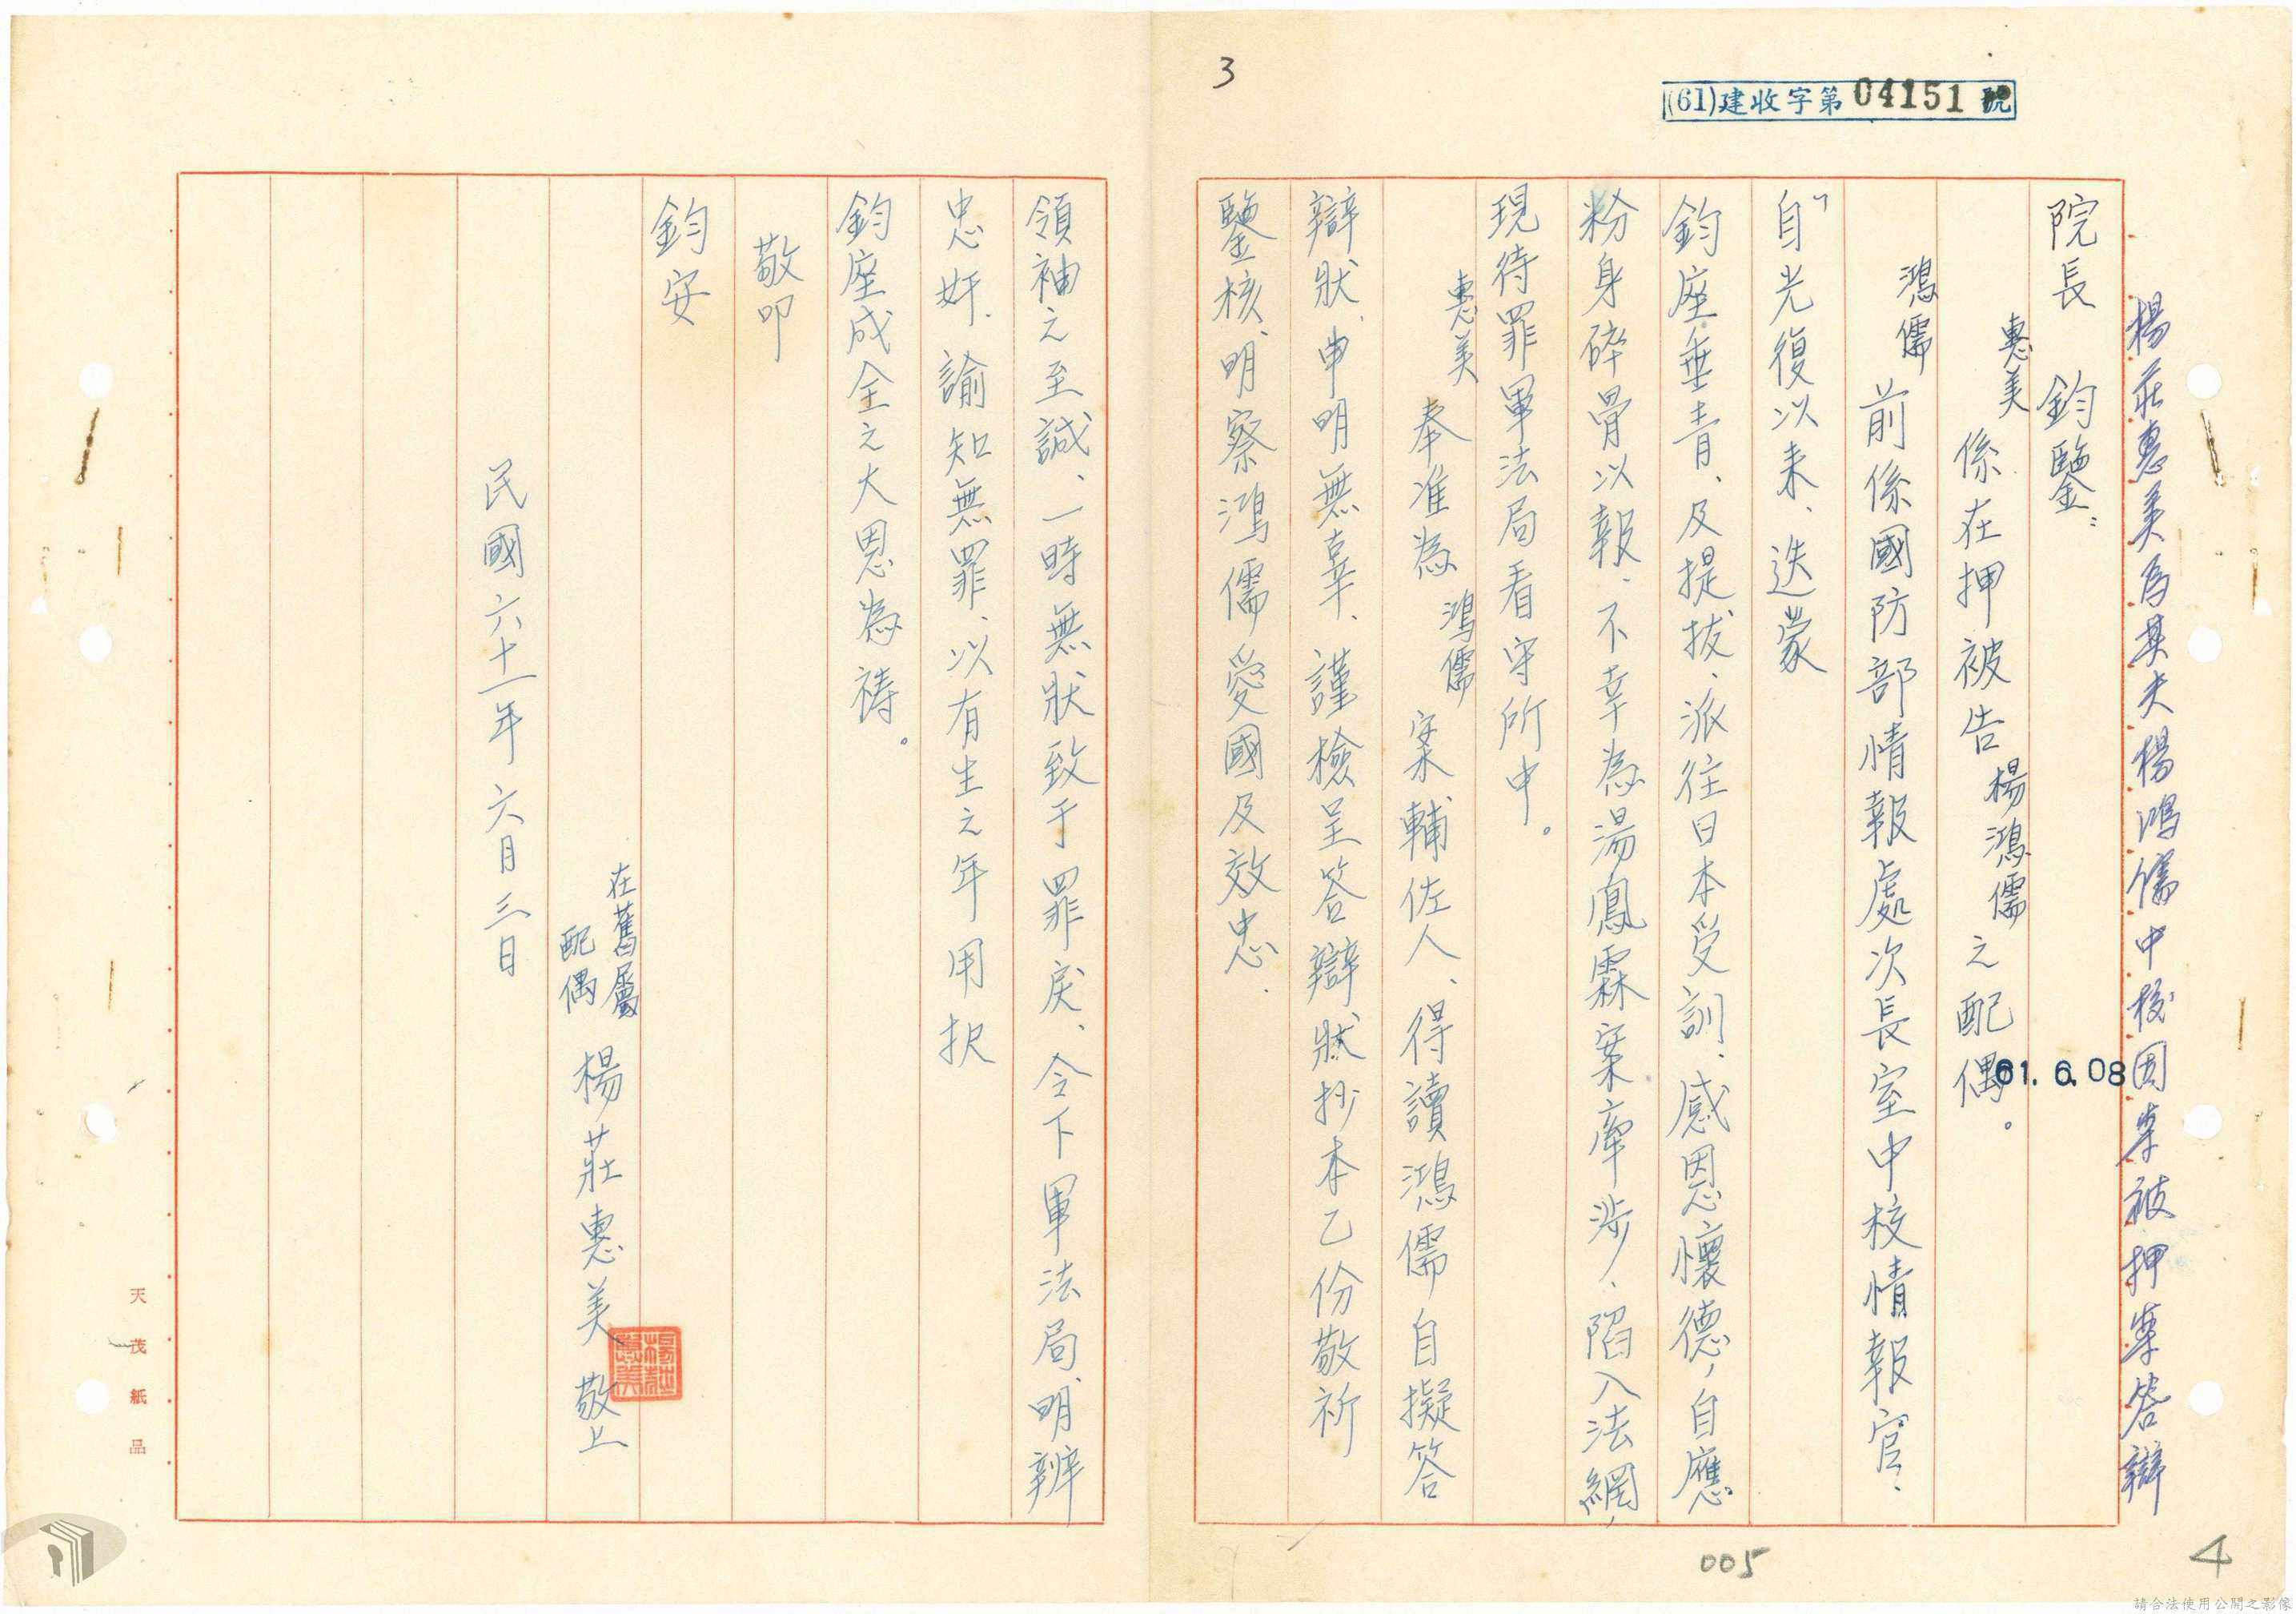 3
(61)建收字第04151號
楊莊惠美為其夫楊鴻儒中校因案被押案答辯
院長 鈞鑒：
惠美 係在押被告楊鴻儒之配偶。
鴻儒 前係國防部情報處次長室中校情報官、
自光復以来、迭蒙
鈞座垂青、及提拔、派往日本受訓、感恩懷德，自應
粉身碎骨以報、不幸為湯鳳霖案牽涉、陷入法網，
現待罪軍法局看守所中。
惠美 奉准為 鴻儒 案輔佐人、得讀鴻儒自擬答
辯狀、申明無辜、謹檢呈答辯狀抄本乙份敬祈
鑒核、明察鴻儒愛國及效忠、
61.6.08
領袖之至誠、一時無狀致于罪戾、令下軍法局明辨
忠奸、諭知無罪、以有生之年用択
鈞座成全之大恩為祷。
敬叩
鈞安
在舊屬
配偶 楊莊惠美 敬上
民國六十一年六月三日
天茂紙品
005
4
請合法使用公開之影像